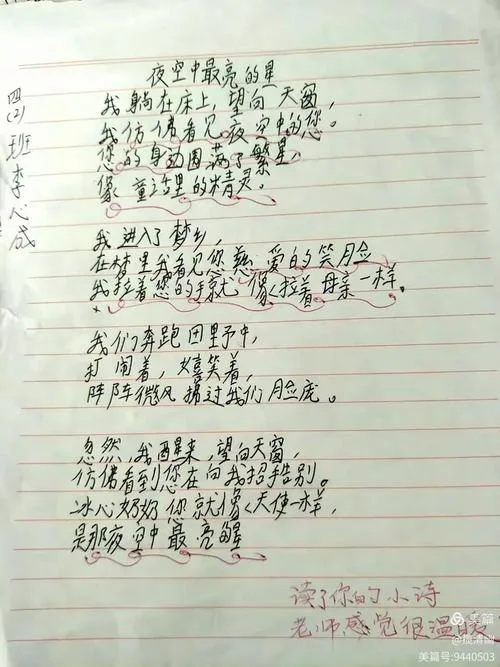 夜空中最亮的星
四(2)班李心成
我躺在床上,望向天窗,
我仿佛看见夜空中的您。
您的身边围满了繁星,
像童话里的精灵。
我进入了梦乡,
在梦里我看见您慈爱的笑脸
我拉着您的手就像拉着母亲一样。
我们奔跑田野中,
打闹着,嬉笑着,
阵阵微风拂过我们脸庞。
忽然,我醒来,望向天窗,
仿佛看到您在向我招手告别。
冰心奶奶您就像天使一样,
是那夜空中最亮的星
读了你的小诗
老师感觉很温暖
美篇
@揽清幽
美篇号:9440503